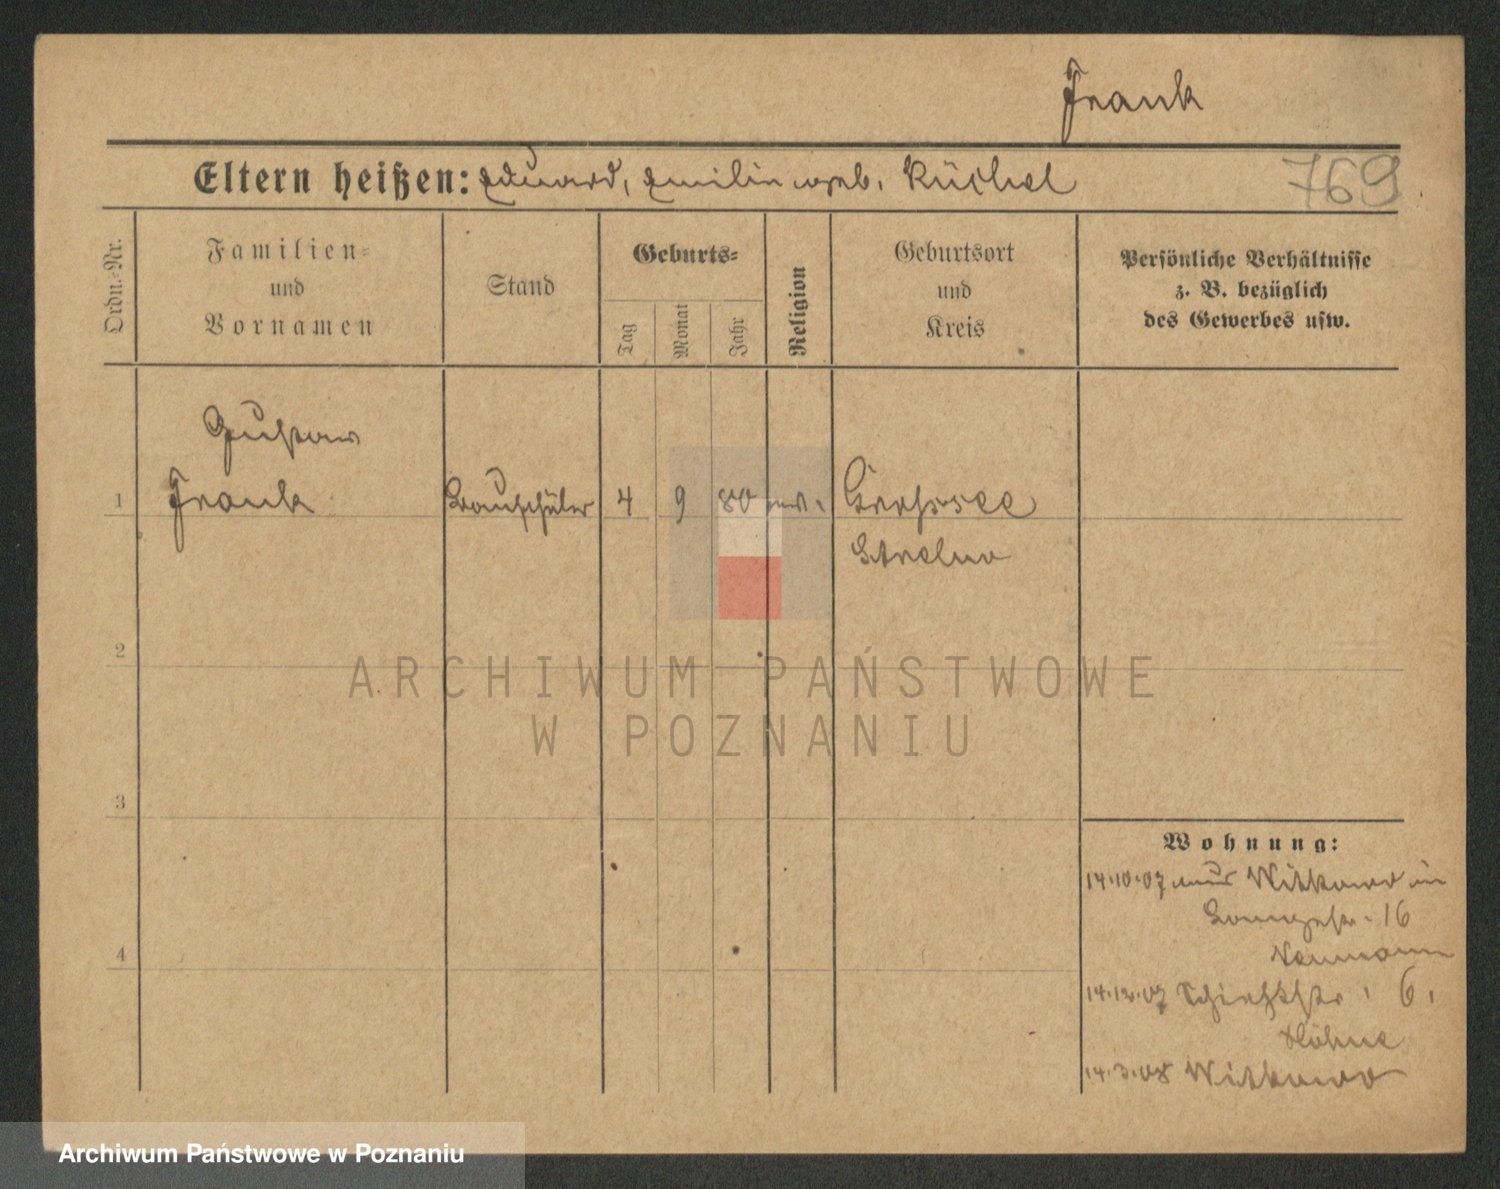 Frank
Eltern heißen: Eduard, Emilie geb. Küchel
769
Ordn.-Nr.
Familien-
und
Vornamen
Stand
Geburts-
Tag
Monat
Jahr
Religion
Geburtsort
und
Kreis
Persönliche Verhältnisse
z. B. bezüglich
des Gewerbes usw.
Gustav
1 Frank Bauschüler 4 9 80 Grossee
Strelno
2
3
4
ARCHIWUM PAŃSTWOWE
W POZNANIU
Wohnung:
14.10.07 aus Witkowo in
16
Naumann
14.12.07 6.
Höhne
14.3.08 Witkowo
Archiwum Państwowe w Poznaniu